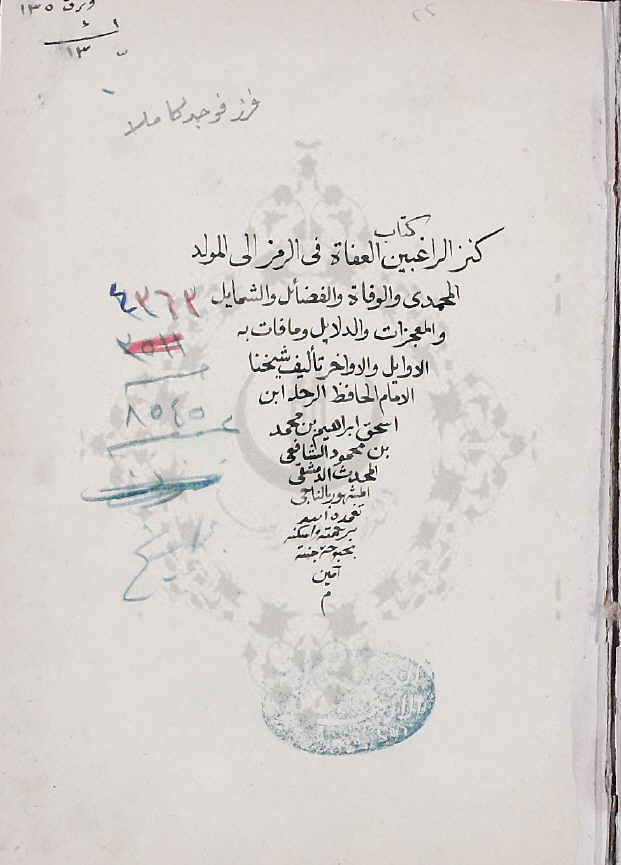 ورق ١٣٥
١٣
٢٢
فرز فوجد كاملا
كتاب
كنز الراغبين العفاة في الرمز الى المولد
المحمدي والوفاة والفضائل والشمايل
والمعجزات والدلايل وما فات به
الاوايل والاواخر تأليف شيخنا
الامام الحافظ الرحله ابن
اسحق ابراهيم بن محمد
بن محمود الشافعي
المحدث الدمشقي
المشهور بالناجي
تغمده الله
برحمته واسكنه
بحبوحة جنته
آمين
م
٤٣٦٣
٨٥٤٥
تاريخ